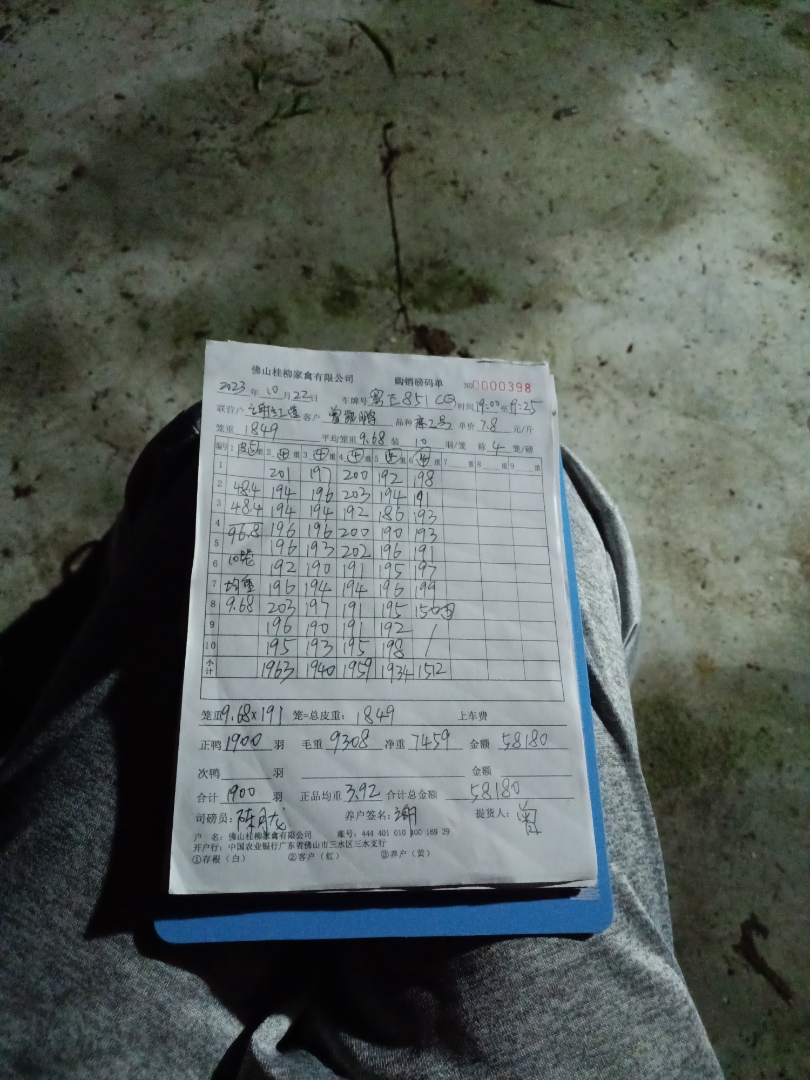 佛山桂柳家禽有限公司 购销磅码单 NO 0000398
2023年10月22日 车牌号 粤E851CQ 时间 19:00至19:25
联营户 客户 曾凯鹏 品种 麻2号 单价 7.8 元/斤
笼重 1849 平均笼重 9.68 装 10 羽/笼 称 4 笼/磅
编号 1 皮重 2 毛重 3 毛重 4 毛重 5 毛重 6 毛重 7 重 8 重 9 重
1 201 197 200 192 198
2 48.4 194 196 203 194 191
3 48.4 194 194 192 186 193
4 96.8 196 196 200 190 193
5 10笼 196 193 202 196 191
6 192 190 191 195 197
7 均重 196 194 194 196 199
8 9.68 203 197 191 195 150
9 196 190 191 192 /
10 195 193 195 198 /
小计 1963 1940 1959 1934 1512
笼重 9.68×191 笼=总皮重： 1849 上车费
正鸭 1900 羽 毛重 9308 净重 7459 金额 58180
次鸭 羽 金额
合计 1900 羽 正品均重 3.92 合计总金额 58180
司磅员： 陈月龙 养户签名： 谢 提货人： 曾
户 名：佛山桂柳家禽有限公司 账号：444 401 010 400 169 29
开户行：中国农业银行广东省佛山市三水区三水支行
①存根（白） ②客户（红） ③养户（黄）